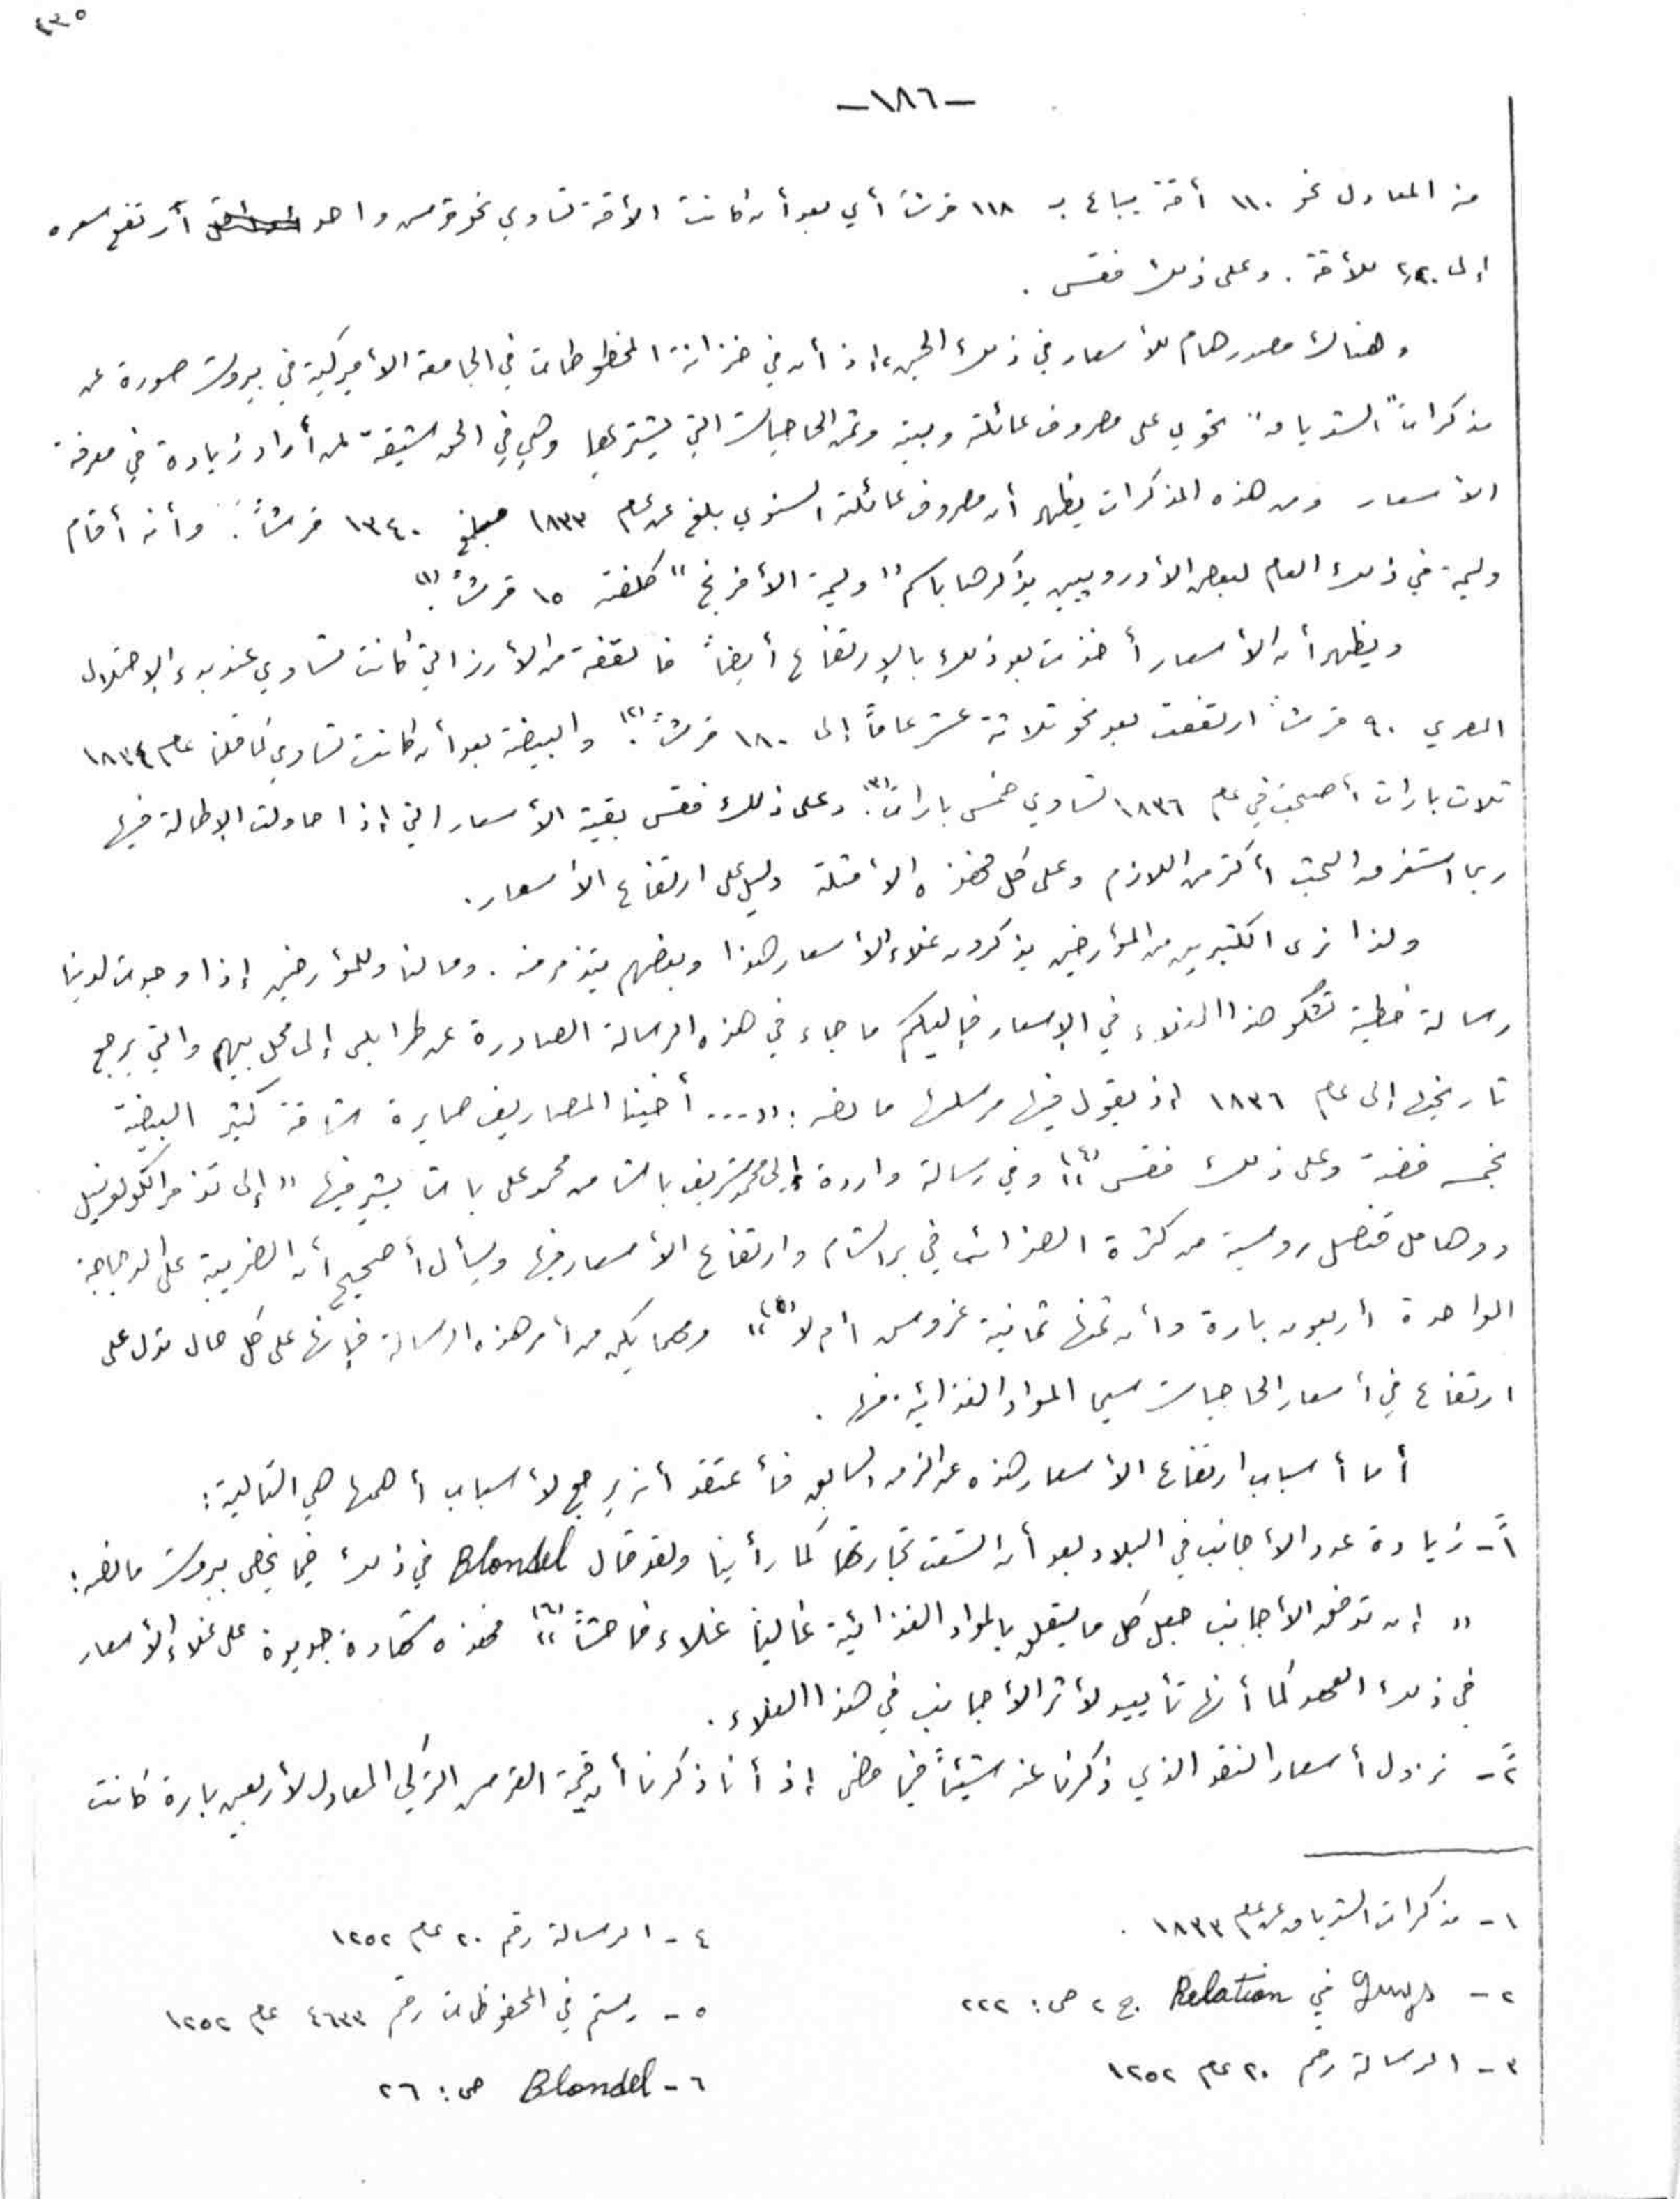 ٢٣٥
-١٨٦-
منه المعادل نحو ١١٠ أقة يباع بـ ١١٨ قرشاً أي بعد أن كانت الأقة تساوي نحو قرس واحد أرتفع سعره
إلى ٢,٢٠ للأقة. وعلى ذلك فقس.
وهناك مصدر هام للأسعار في ذلك الحين، إذ أن في خزانة المخطوطات في الجامعة الأميركية في بيروت صورة عن
مذكرات "الشدياق" تحوي على مصروف عائلته وبيته وثمن الحاجيات التي يشتريها وهي في الحق شيقة لمن أراد زيادة في معرفة
الأسعار ومن هذه المذكرات يظهر أن مصروف عائلته السنوي بلغ عن عام ١٨٣٣ مبلغ ١٣٤٠ قرشاً. وأنه أقام
وليمة في ذلك العام لبعض الأوروبيين يذكرها باسم "وليمة الأفرنج" كلفته ١٥ قرشاً.(١)
ويظهر أن الأسعار أخذت بعد ذلك بالإرتفاع أيضاً فالقفة من الأرز التي كانت تساوي عند بدء الإحتلال
المصري ٩٠ قرشاً ارتفعت بعد نحو ثلاثة عشر عاماً إلى ١٨٠ قرشاً.(٢) والبيضة بعد أن كانت تساوي كما قلنا عام ١٨٣٤
ثلاث بارات أصبحت في عام ١٨٣٦ تساوي خمس بارات(٣). وعلى ذلك فقس بقية الأسعار التي إذا حاولت الإطالة فيها
ربما استغرق البحث أكثر من اللازم وعلى كل فهذه الأمثلة دليل على ارتفاع الأسعار.
ولذا نرى الكثيرين من المؤرخين يذكرون غلاء الأسعار هذا وبعضهم يتذمر منه. وما لنا وللمؤرخين إذا وجدت لدينا
رسالة خطية تشكو هذا الغلاء في الإسعار فإليكم ما جاء في هذه الرسالة الصادرة عن طرابلس إلى محل بيهم والتي يرجع
تاريخها إلى عام ١٨٣٦ إذ يقول فيها مرسلها ما نصه: "... أخينا المصاريف صايرة شاقة كثير البيضة
بخمسه فضة وعلى ذلك فقس"(٤) وفي رسالة واردة إلى محمد شريف باشا من محمد علي باشا يشير فيها "إلى تذمر الكولونيل
دوهامل قنصل روسية من كثرة الضرائب في بر الشام وارتفاع الأسعار فيها ويسأل أصحيح أن الضريبة على الدجاجة
الواحدة أربعون بارة وأن ثمنها ثمانية غروس أم لا"(٥) ومهما يكن من أمر هذه الرسالة فإنها على كل حال تدل على
ارتفاع في أسعار الحاجيات سيما المواد الغذائية منها.
أما أسباب ارتفاع الأسعار هذه عن الزمن السابق فأعتقد أنه يرجع لأسباب أهمها هي التالية:
١ً- زيادة عدد الأجانب في البلاد بعد أن اتسعت تجارتها كما رأينا ولقد قال Blondel في ذلك فيما يخص بيروت ما نصه:
"إن تدفق الأجانب جعل كل ما يتعلق بالمواد الغذائية غالياً غلاء فاحشاً"(٦) فهذه شهادة جديدة على غلاء الأسعار
في ذلك العهد كما أنها تأييد لأثر الأجانب في هذا الغلاء.
٢ً- نزول أسعار النقد الذي ذكرنا عنه شيئاً فيما مضى إذ أنا ذكرنا أن قيمة القرس التركي المعادل لأربعين بارة كانت
١- مذكرات الشدياق عن عام ١٨٣٣.
٢- Guys في Relation ج ٢ ص: ٢٢٢
٣- الرسالة رقم ٢٠ عام ١٢٥٢
٤- الرسالة رقم ٢٠ عام ١٢٥٢
٥- رستم في المحفوظات رقم ٤٦٣٣ عام ١٢٥٢
٦- Blondel ص: ٢٦